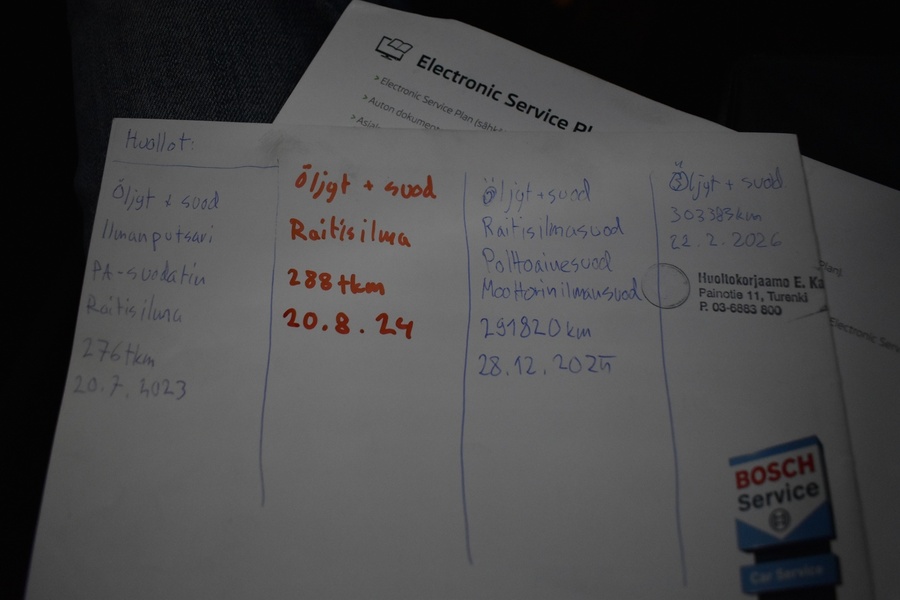 Electronic Service Pl
> Electronic Service Plan (sähk
> Auton dokument
> Asiak
Huollot:
Öljyt + suod
Ilmanputsari
PA-suodatin
Raitisilma
276tkm
20.7.2023
Öljyt + suod
Raitisilma
288tkm
20.8.24
Öljyt + suod
Raitisilmasuod
Polttoainesuod
Moottorinilmansuod
291820km
28.12.2025
Öljyt + suod
303385km
22.2.2026
Huoltokorjaamo E. Ka
Painotie 11, Turenki
P. 03-6883 800
BOSCH
Service
Car Service
Plan)
Electronic Serv